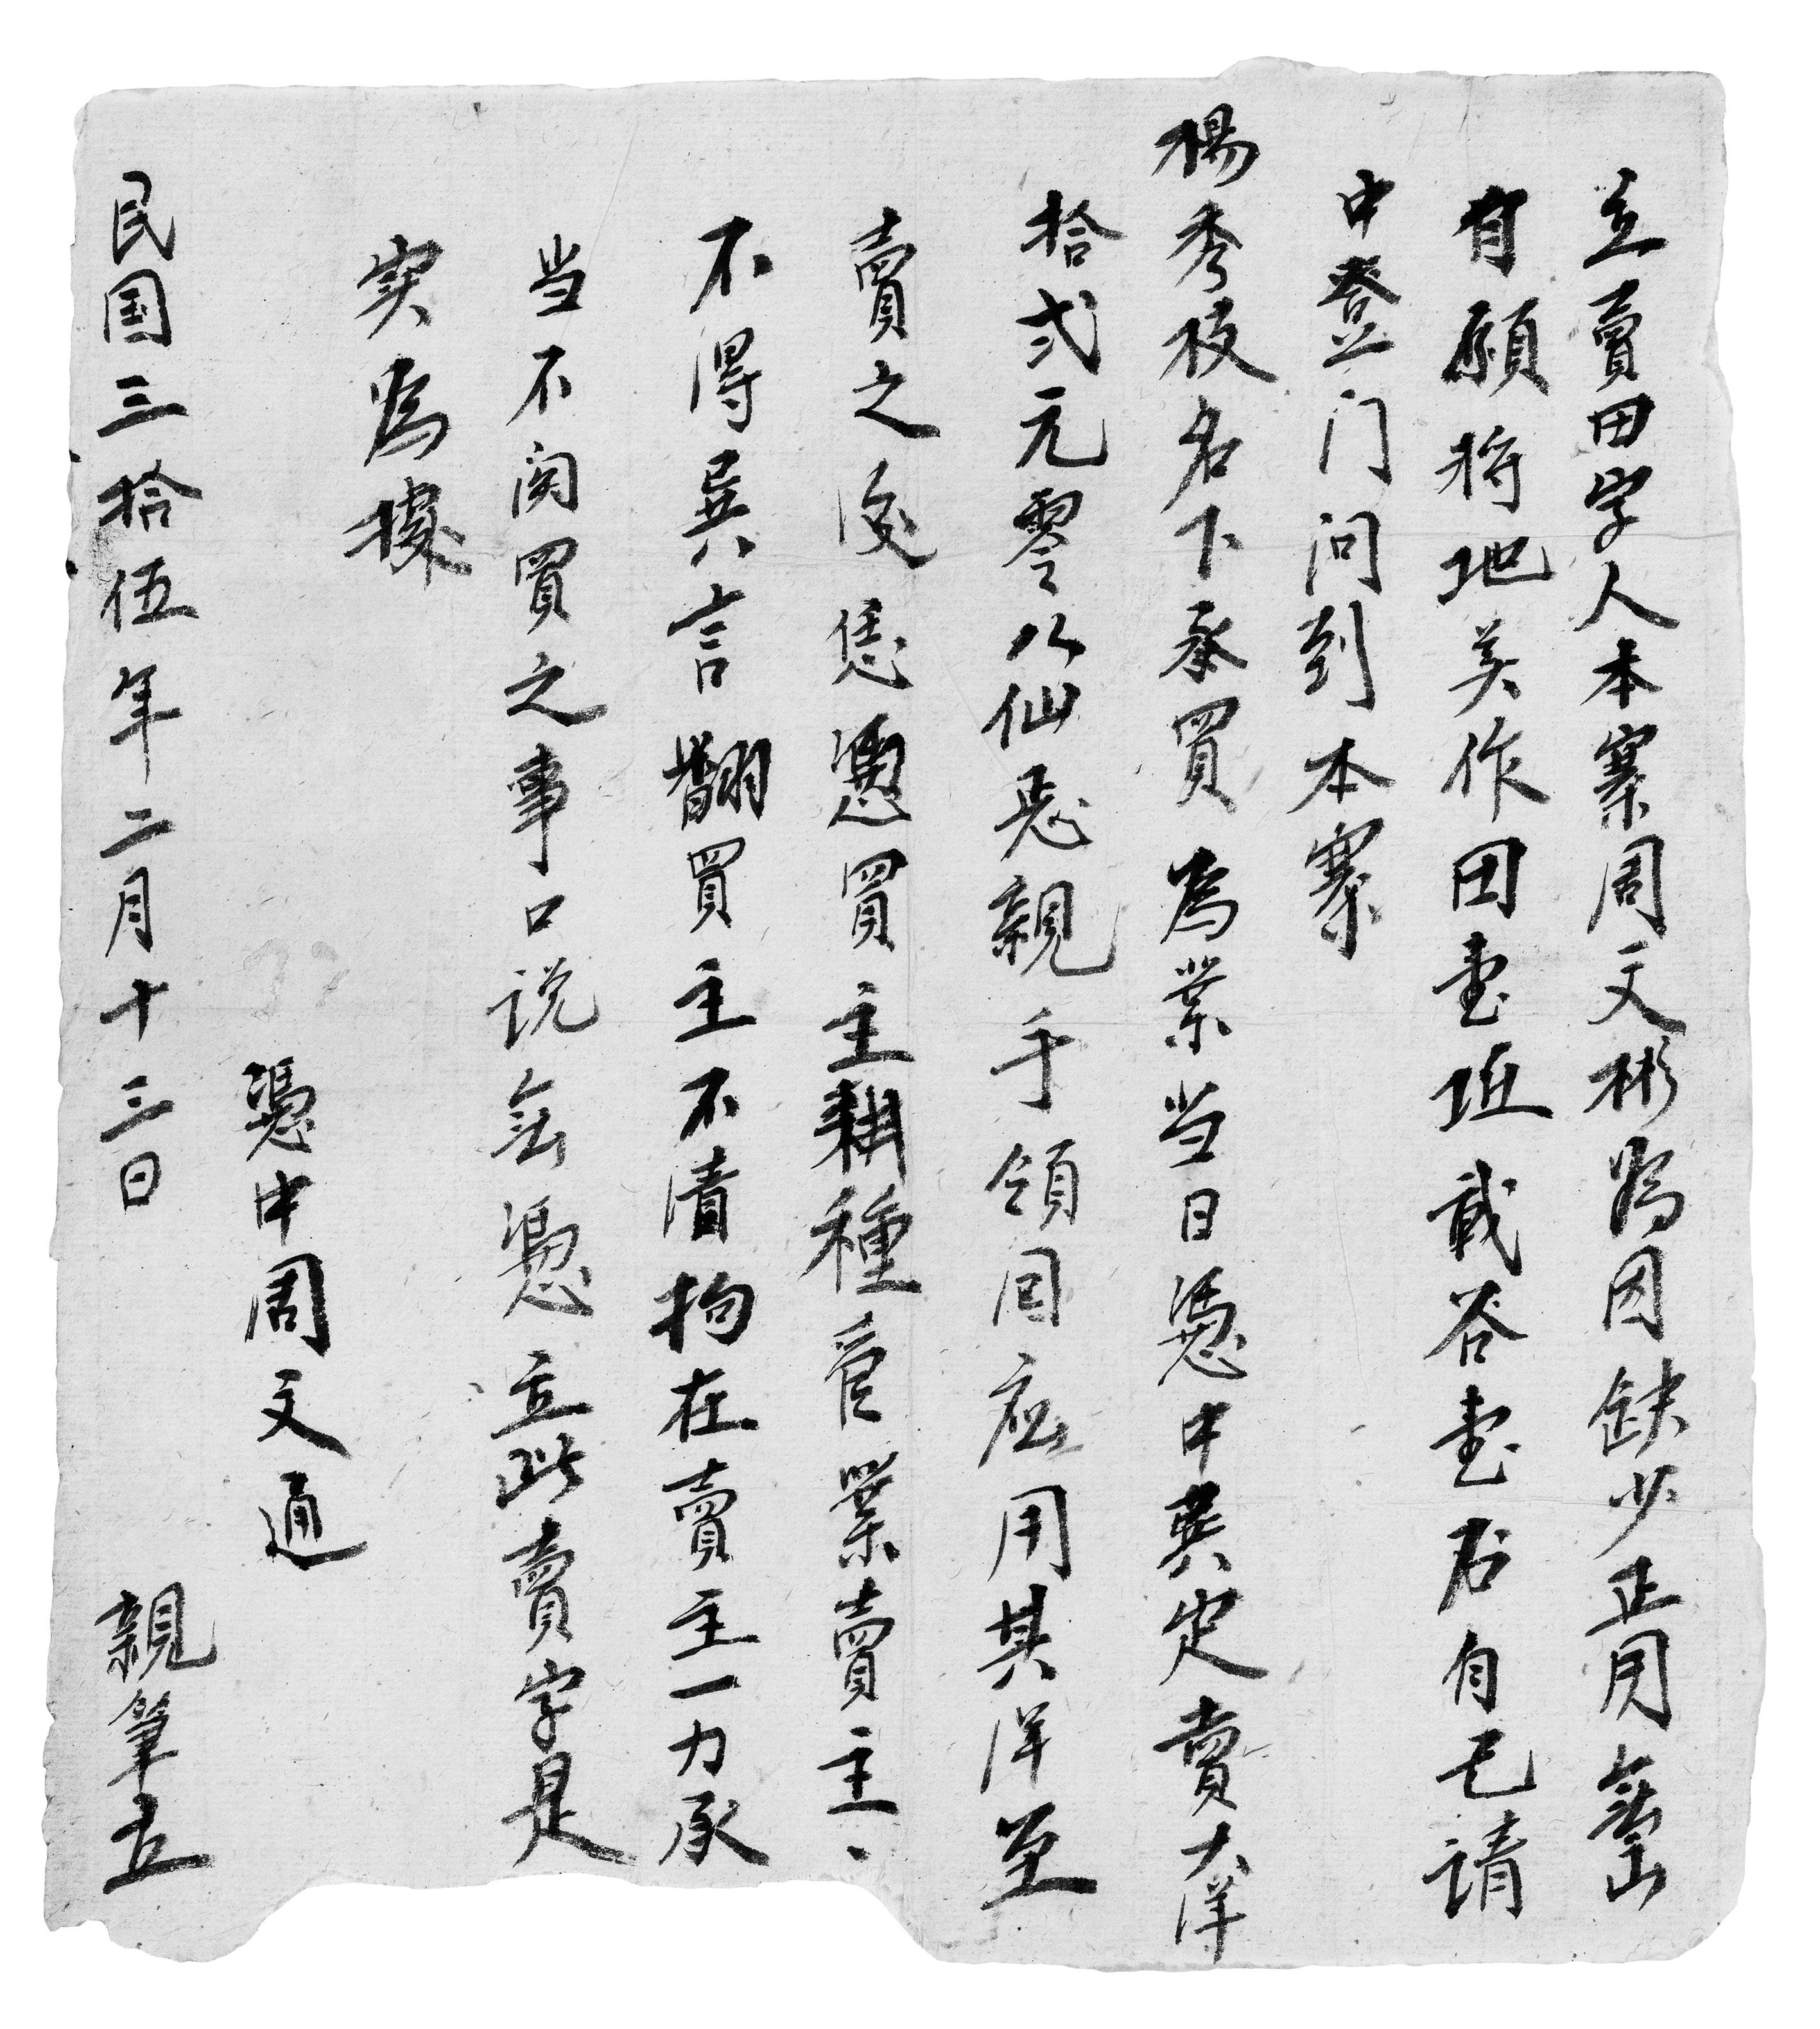 立賣田字人本寨周文彬爲因缺少正用無出
自願将地美作田壹坵載谷壹石自己请
中登门问到本寨
楊秀枝名下承買爲業当日憑中異定賣大洋
拾弍元零八仙忎親手領回応用其洋至
賣之後恁憑買主耕種管業賣主、
不得異言翻買主不清拘在賣主一力承
当不関買之事口说無憑立此賣字是
実爲據
憑中周文通
民国三拾伍年二月十三日 親筆立